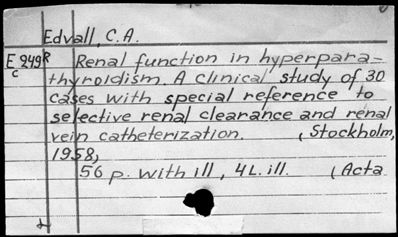 Edvall, C.A.
E 249 R
c
Renal function in hyperpara=
thyroidism. A clinical study of 30
cases with special reference to
selective renal clearance and renal
vein catheterization. (Stockholm,
1958,
56 p. with ill, 4 L. ill. (Acta